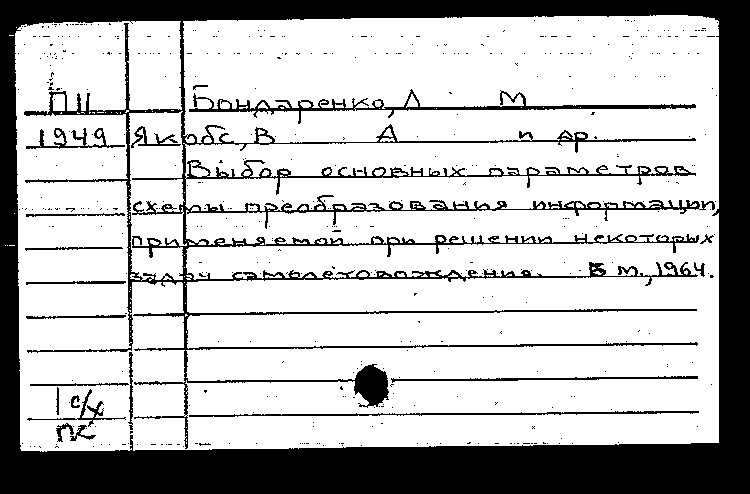 П11 Бондаренко, Л М
1949 Якобс, В А и др.
Выбор основных параметров
схемы преобразования информации,
применяемой при решении некоторых
задач самолетовождения. Б м., 1964.
1 с/х
пк